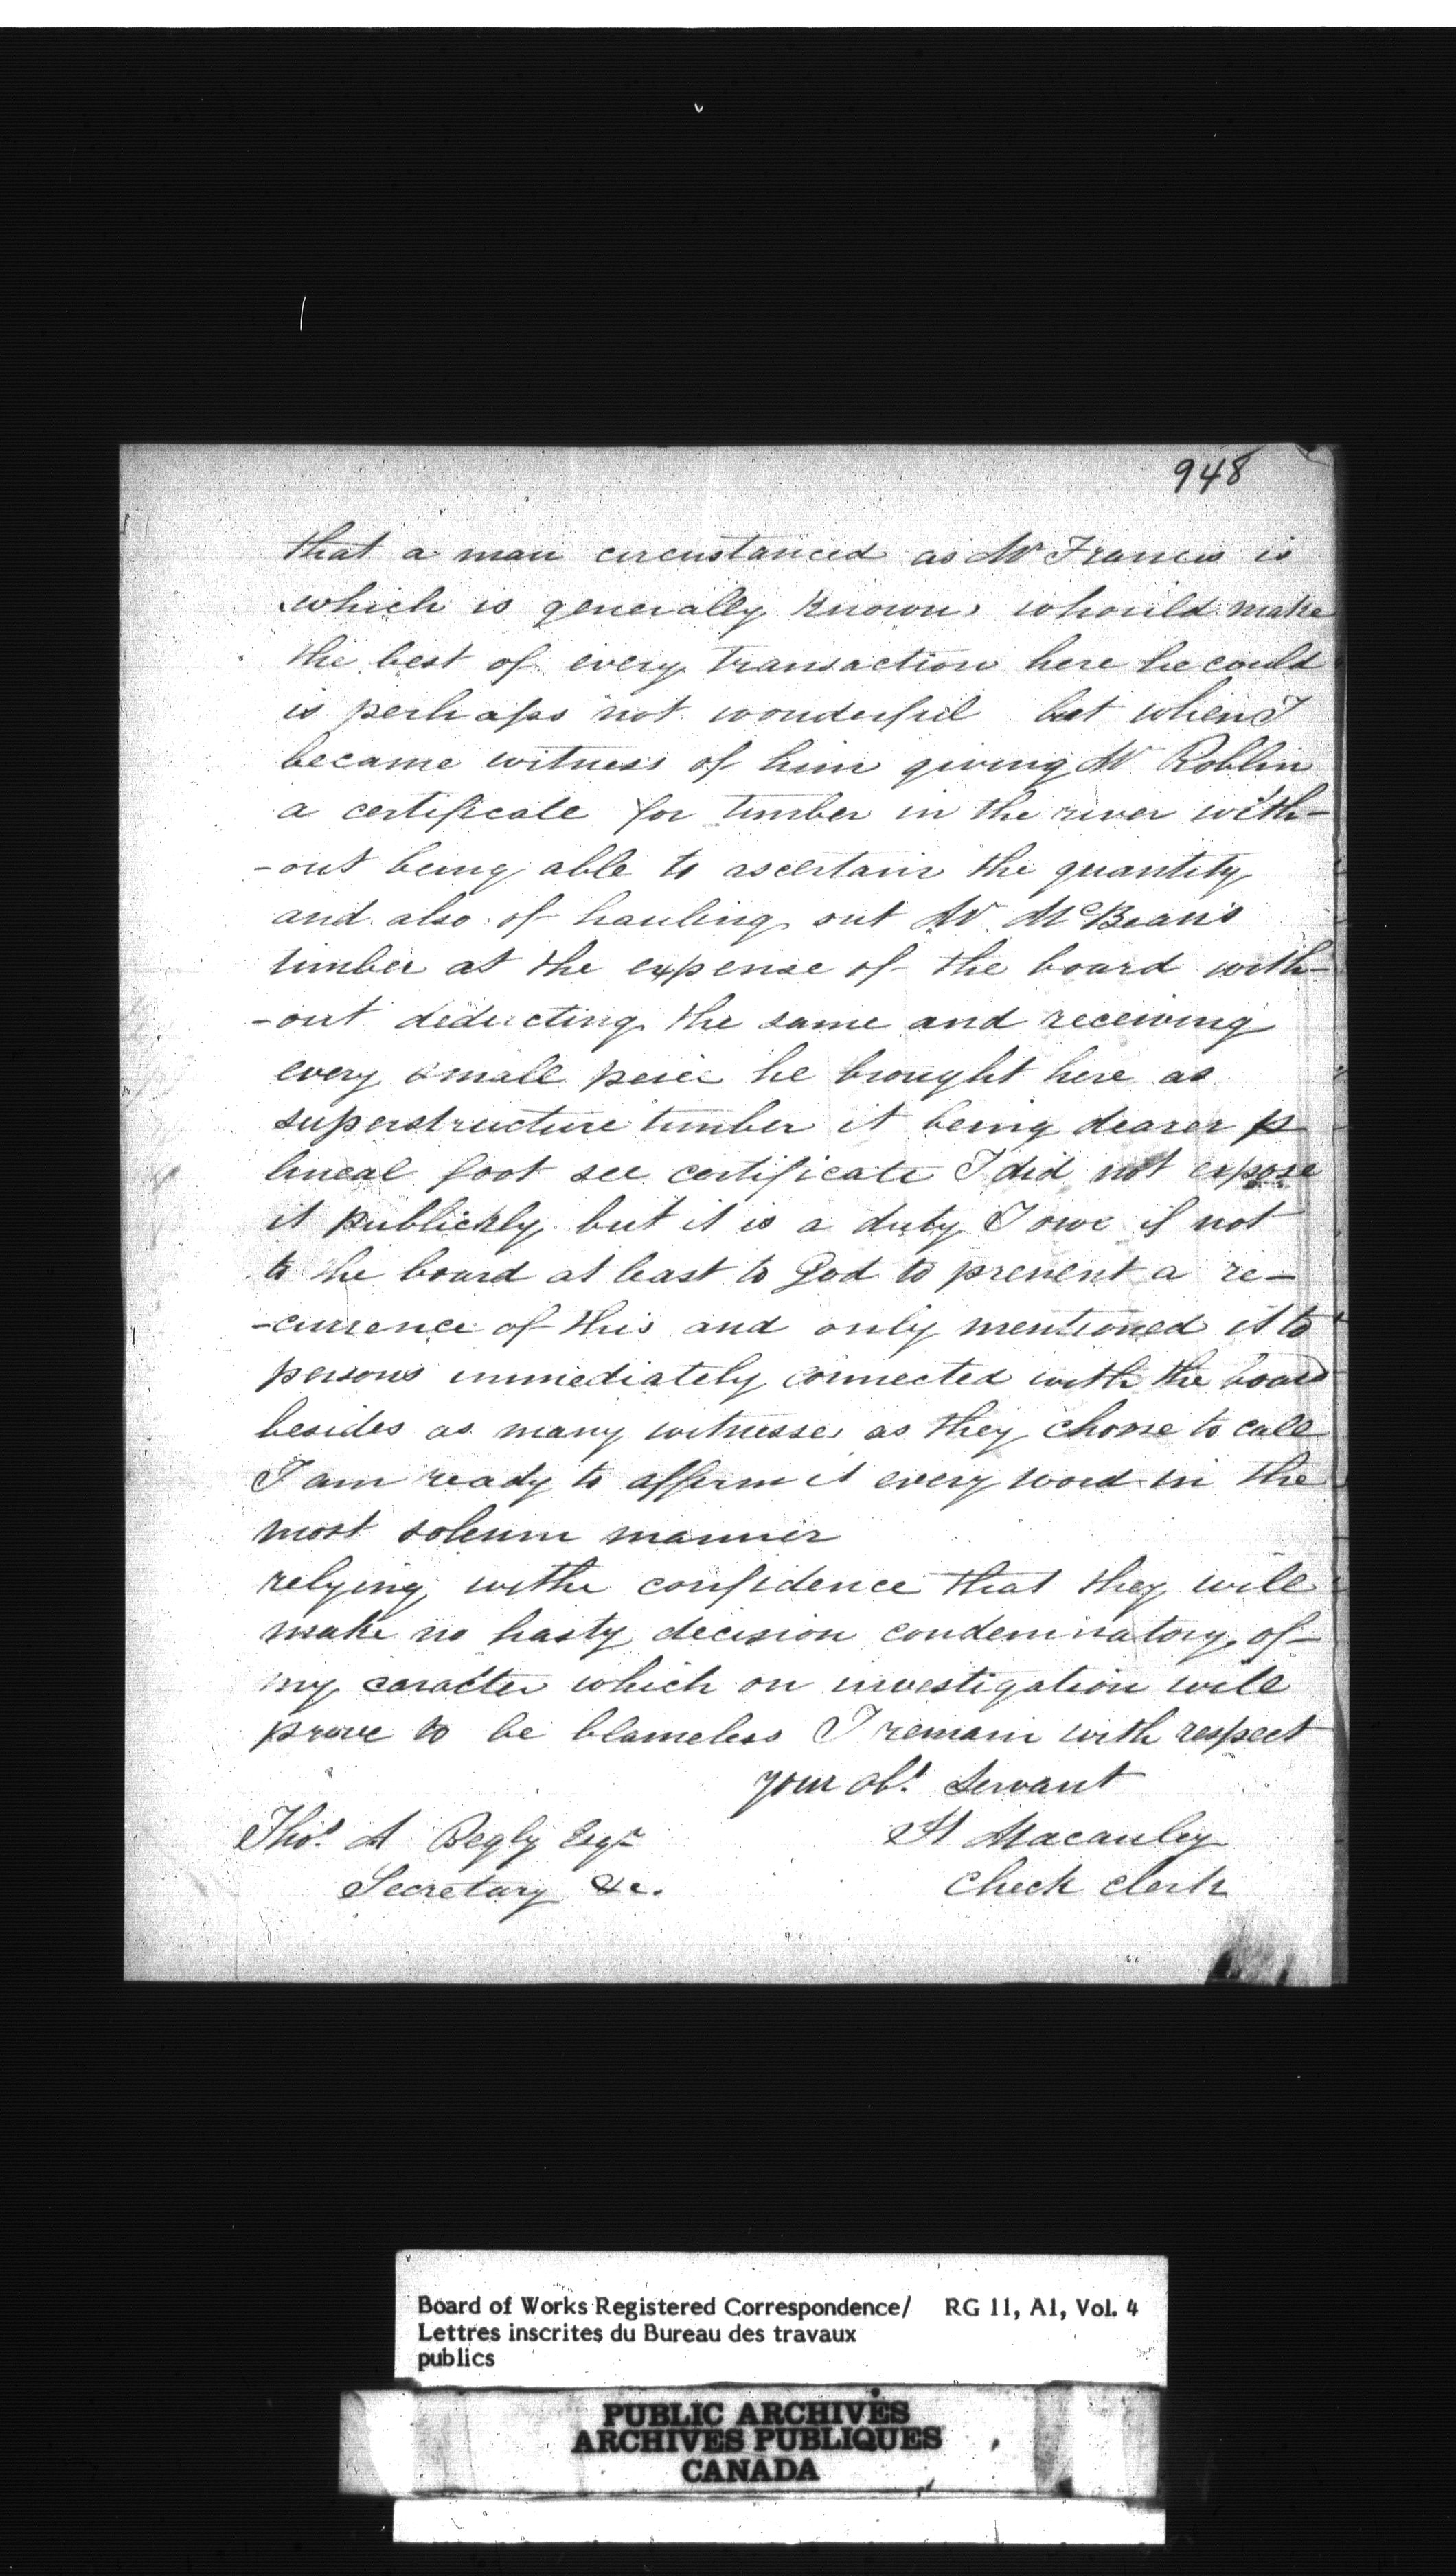 948
that a man circustanced as Mr Francis is
which is generally known, whould make
the best of every transaction here he could
is perhaps not wonderful but when I
became witness of him giving Mr Roblin
a certificate for timber in the river with-
-out being able to ascertain the quantity
and also of hauling out Mr McBean's
timber at the expense of the board with-
-out deducting the same and receiving
every small peice he brought here as
superstructure timber it being dearer p
lineal foot see certificate I did not expose
it publickly but it is a duty I owe if not
to the board at least to God to prevent a re-
-currence of this and only mentioned it to
persons immediately connected with the board
besides as many witnesses as they choose to call
I am ready to affirm it every word in the
most solemn manner
relying withe confidence that they will
make no hasty decision condeminatory of
my caracter which on investigation will
prove to be blameless I remain with respect
your obt Servant
Thos A Begly Esqr
H Macauley
Secretary &c.
Check clerk
Board of Works Registered Correspondence/ RG 11, A1, Vol. 4
Lettres inscrites du Bureau des travaux
publics
PUBLIC ARCHIVES
ARCHIVES PUBLIQUES
CANADA